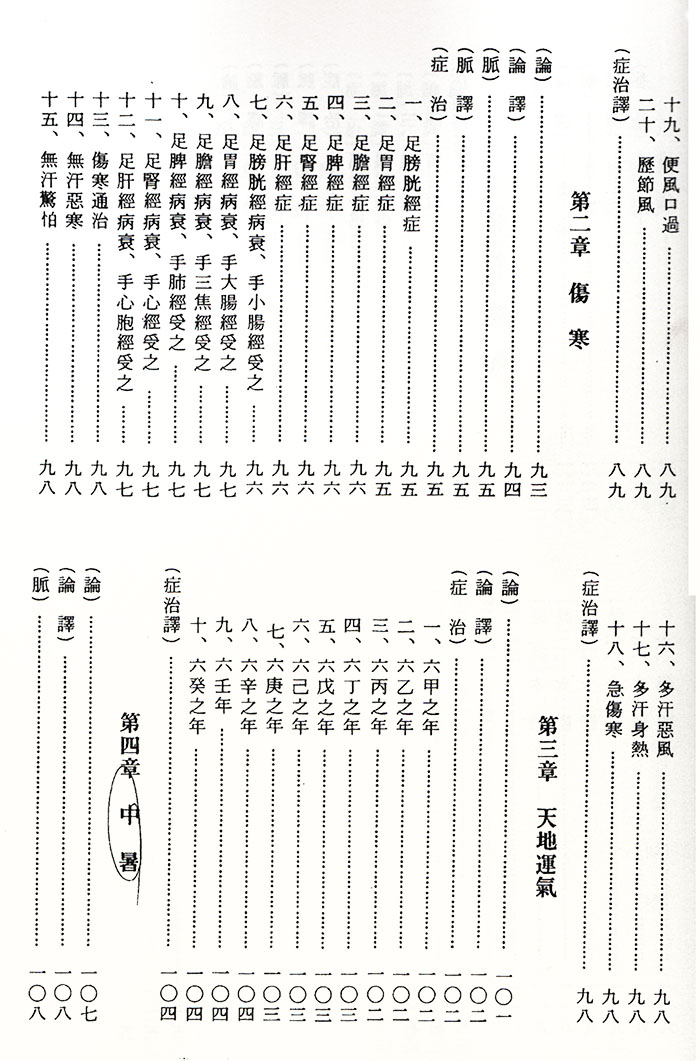 十九、便風口過……八九
二十、歷節風……八九
(症治譯)……八九
第二章 傷寒
(論)……九三
(論譯)……九四
(脈)……九五
(脈譯)……九五
(症治)……九五
一、足膀胱經症……九五
二、足胃經症……九五
三、足膽經症……九六
四、足脾經症……九六
五、足腎經症……九六
六、足肝經症……九六
七、足膀胱經病衰、手小腸經受之……九六
八、足胃經病衰、手大腸經受之……九七
九、足膽經病衰、手三焦經受之……九七
十、足脾經病衰、手肺經受之……九七
十一、足腎經病衰、手心經受之……九七
十二、足肝經病衰、手心胞經受之……九七
十三、傷寒通治……九八
十四、無汗惡寒……九八
十五、無汗驚怕……九八
十六、多汗惡風……九八
十七、多汗身熱……九八
十八、急傷寒……九八
(症治譯)……九八
第三章 天地運氣
(論)……一〇一
(論譯)……一〇二
(症治)……一〇二
一、六甲之年……一〇二
二、六乙之年……一〇二
三、六丙之年……一〇二
四、六丁之年……一〇三
五、六戊之年……一〇三
六、六己之年……一〇三
七、六庚之年……一〇三
八、六辛之年……一〇四
九、六壬年……一〇四
十、六癸之年……一〇四
(症治譯)……一〇四
第四章 中暑
(論)……一〇七
(論譯)……一〇八
(脈)……一〇八